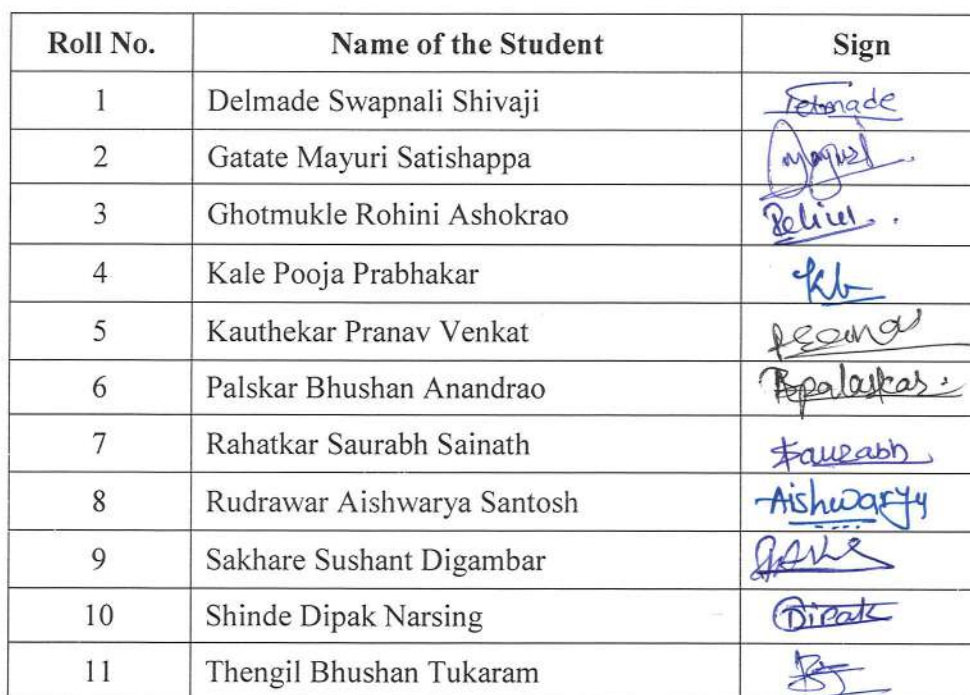 Roll No. Name of the Student Sign
1 Delmade Swapnali Shivaji
2 Gatate Mayuri Satishappa
3 Ghotmukle Rohini Ashokrao
4 Kale Pooja Prabhakar
5 Kauthekar Pranav Venkat
6 Palskar Bhushan Anandrao Bpalaskar
7 Rahatkar Saurabh Sainath Saurabh
8 Rudrawar Aishwarya Santosh Aishwarya
9 Sakhare Sushant Digambar
10 Shinde Dipak Narsing Dipak
11 Thengil Bhushan Tukaram